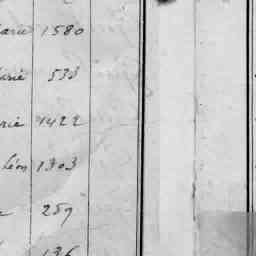 arie 1580
arié 533
rie 1422
léon 1303
e 259
136